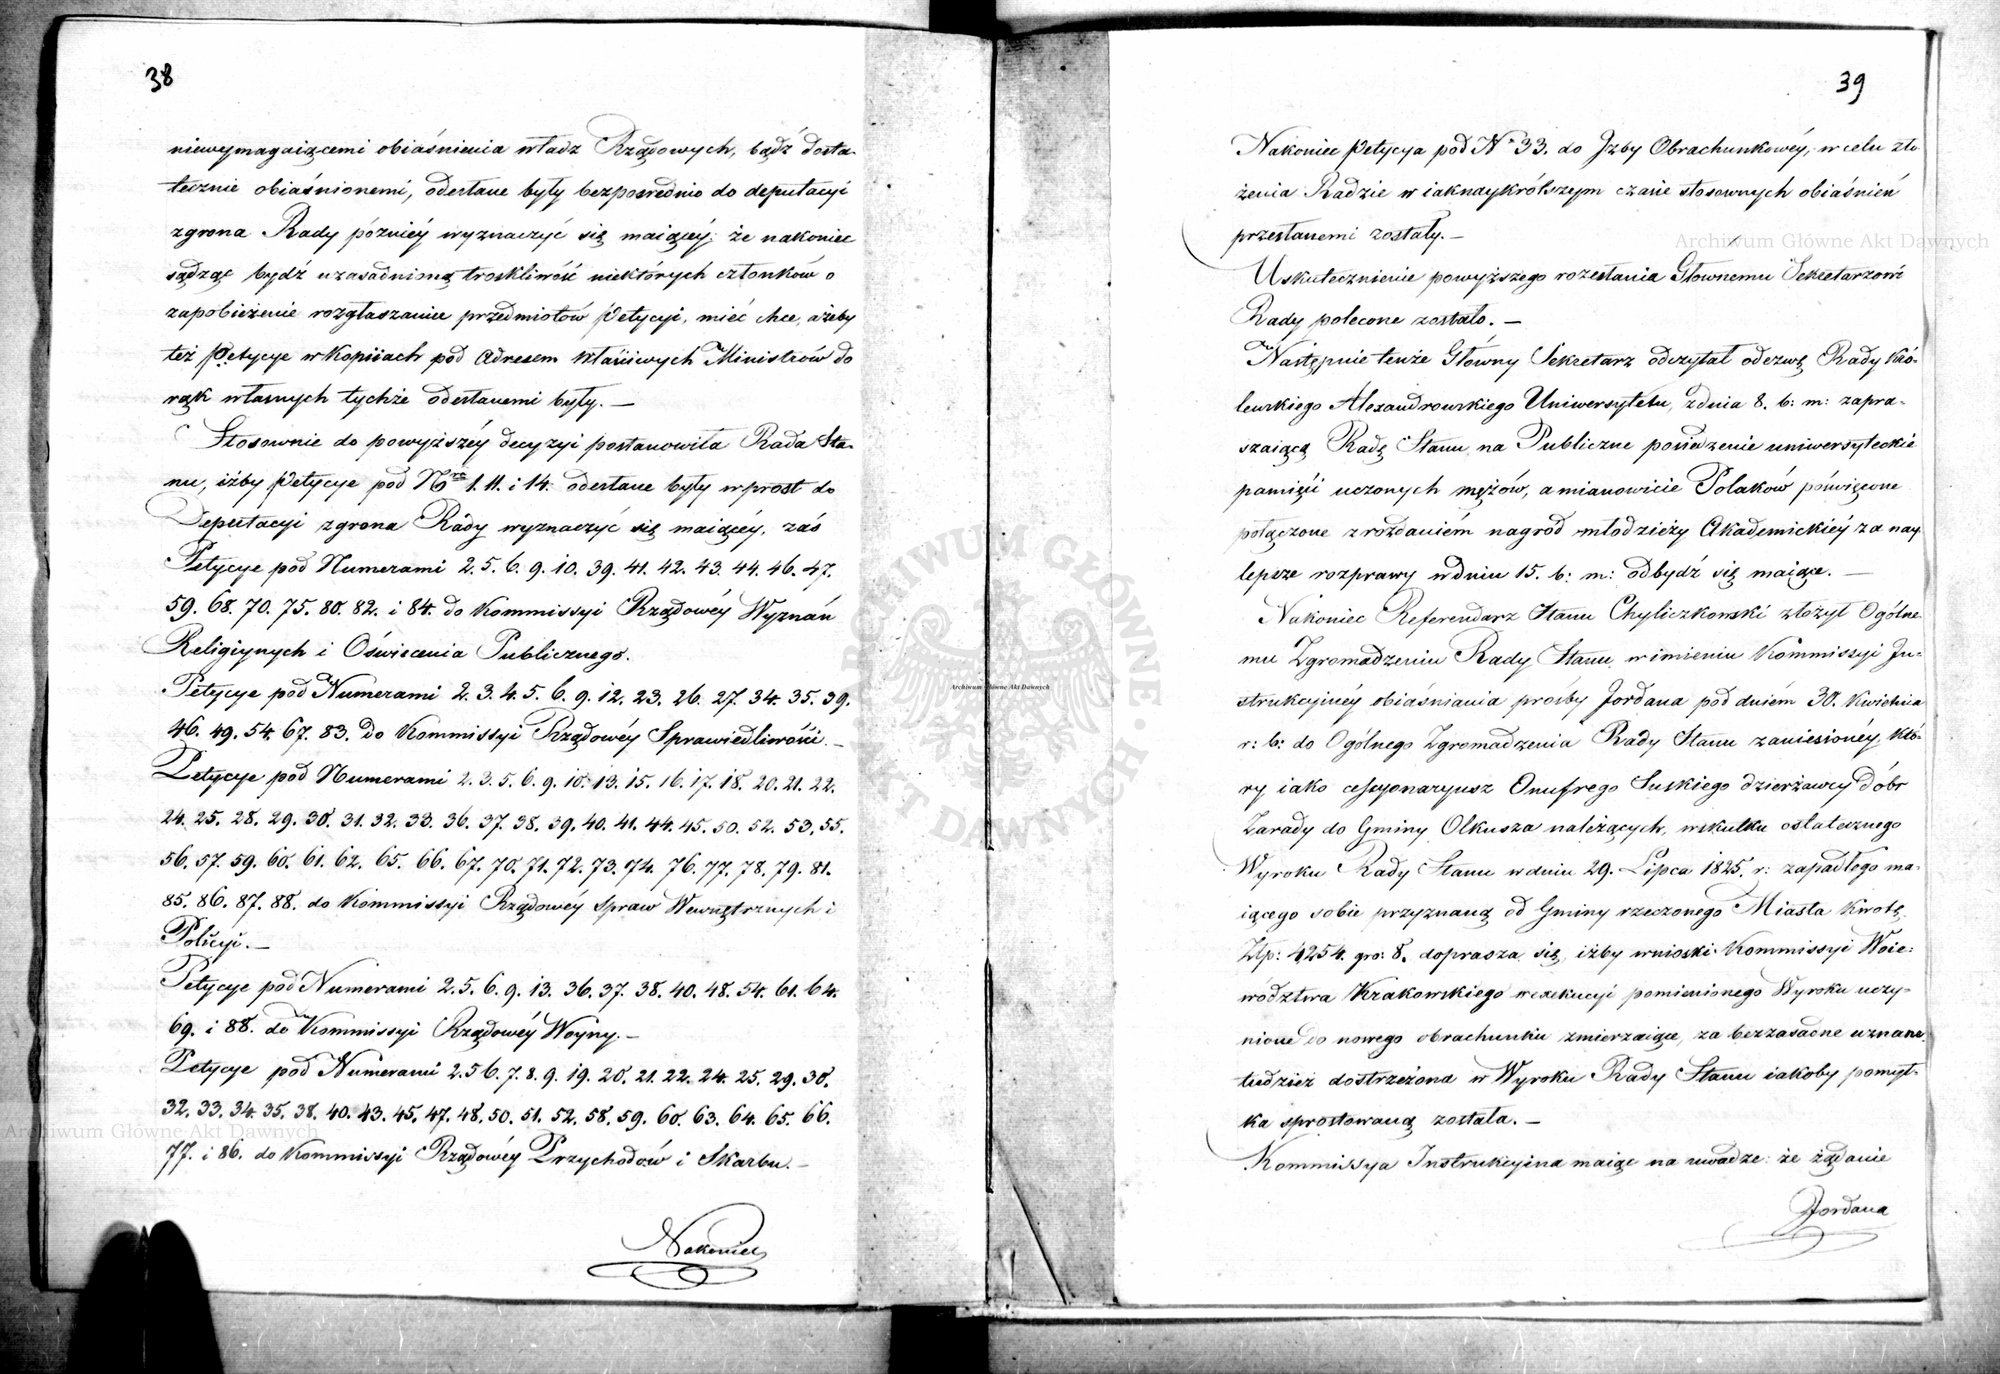 38
niewymagaiącemi obiaśnienia władz Rządowych, bądź dosta-
tecznie obiaśnionemi, odesłane były bezpośrednio do deputacyi
zgrona Rady późniéy wyznaczyć się maiącéy; że nakoniec
sądząc bydź uzasadnioną troskliwość niektórych członków o
zapobieżenie rozgłaszaniu przedmiotów Petycyi, mieć chce, ażeby
też Petycye w Kopiiach pod Adresem właściwych Ministrów do
rąk własnych tychże odesłanemi były. —
Stosownie do powyższéy decyzyi postanowiła Rada Sta-
nu, iżby Petycye pod Nrs 1. 11. i 14. odesłane były wprost do
Deputacyi zgrona Rady wyznaczyć się maiącéy, zaś
Petycye pod Numerami 2. 5. 6. 9. 10. 39. 41. 42. 43. 44. 46. 47.
59. 68. 70. 75. 80. 82. i 84. do Kommissyi Rządowéy Wyznań
Religiynych i Oświecenia Publicznego.
Petycye pod Numerami 2. 3. 4. 5. 6. 9. 12. 23. 26. 27. 34. 35. 39.
46. 49. 54. 67. 83. do Kommissyi Rządowéy Sprawiedliwości. —
Petycye pod Numerami 2. 3. 5. 6. 9. 10. 13. 15. 16. 17. 18. 20. 21. 22.
24. 25. 28. 29. 30. 31. 32. 33. 36. 37. 38. 39. 40. 41. 44. 45. 50. 52. 53. 55.
56. 57. 59. 60. 61. 62. 65. 66. 67. 70. 71. 72. 73. 74. 76. 77. 78. 79. 81.
85. 86. 87. 88. do Kommissyi Rządowéy Spraw Wewnętrznych i
Policyi. —
Petycye pod Numerami 2. 5. 6. 9. 13. 36. 37. 38. 40. 48. 54. 61. 64.
69. i 88. do Kommissyi Rządowéy Woyny. —
Petycye pod Numerami 2. 5 6. 7. 8. 9. 19. 20. 21. 22. 24. 25. 29. 30.
32. 33. 34. 35. 38. 40. 43. 45. 47. 48. 50. 51. 52. 58. 59. 60. 63. 64. 65. 66.
77. i 86. do Kommissyi Rządowéy Przychodów i Skarbu. —
Nakoniec
39
Nakoniec Petycya pod No 33. do Izby Obrachunkowéy, w celu zło-
żenia Radzie w iaknaykrótszym czasie stosownych obiaśnień
przesłanemi zostały. —
Uskutecznienie powyższego rozesłania Głownemu Sekretarzowi
Rady polecone zostało. —
Następnie tenże Główny Sekretarz odczytał odezwę Rady Kró-
lewskiego Alexandrowskiego Uniwersytetu, z dnia 8. b: m: zapra-
szaiącą Radę Stanu na Publiczne posiedzenie uniwersyteckie
pamięci uczonych mężów, a mianowicie Polaków poświęcone
połączone z rozdaniém nagród młodzieży Akademickiéy za nay-
lepsze rozprawy w dniu 15. b: m: odbydź się maiące. —
Nakoniec Referendarz Stanu Chyliczkowski złożył Ogólne-
mu Zgromadzeniu Rady Stanu w imieniu Kommissyi In-
strukcyinéy obiaśniania prośby Jordana pod dniém 30. Kwietnia
r: b: do Ogólnego Zgromadzenia Rady Stanu zaniesionéy, któ-
ry iako cessyonaryusz Onufrego Suskiego dzierżawcy dóbr
Zarady do Gminy Olkusza należących, wskutku ostatecznego
Wyroku Rady Stanu w dniu 29. Lipca 1825. r: zapadłego ma-
iącego sobie przyznaną od Gminy rzeczonego Miasta Kwotę
Złp: 4254. gro: 8. doprasza się, iżby wnioski Kommissyi Woie-
wództwa Krakowskiego w exekucyi pomienionego Wyroku uczy-
nione do nowego obrachunku zmierzaiące, za bezzasadne uznane
tudzież dostrzeżona w Wyroku Rady Stanu iakoby pomył-
ka sprostowaną została. —
Kommissya Instrukcyina maiąc na uwadze: że żądanie
Jordana
Archiwum Główne Akt Dawnych
Archiwum Główne Akt Dawnych
Archiwum Główne Akt Dawnych
ARCHIWUM GŁÓWNE AKT DAWNYCH